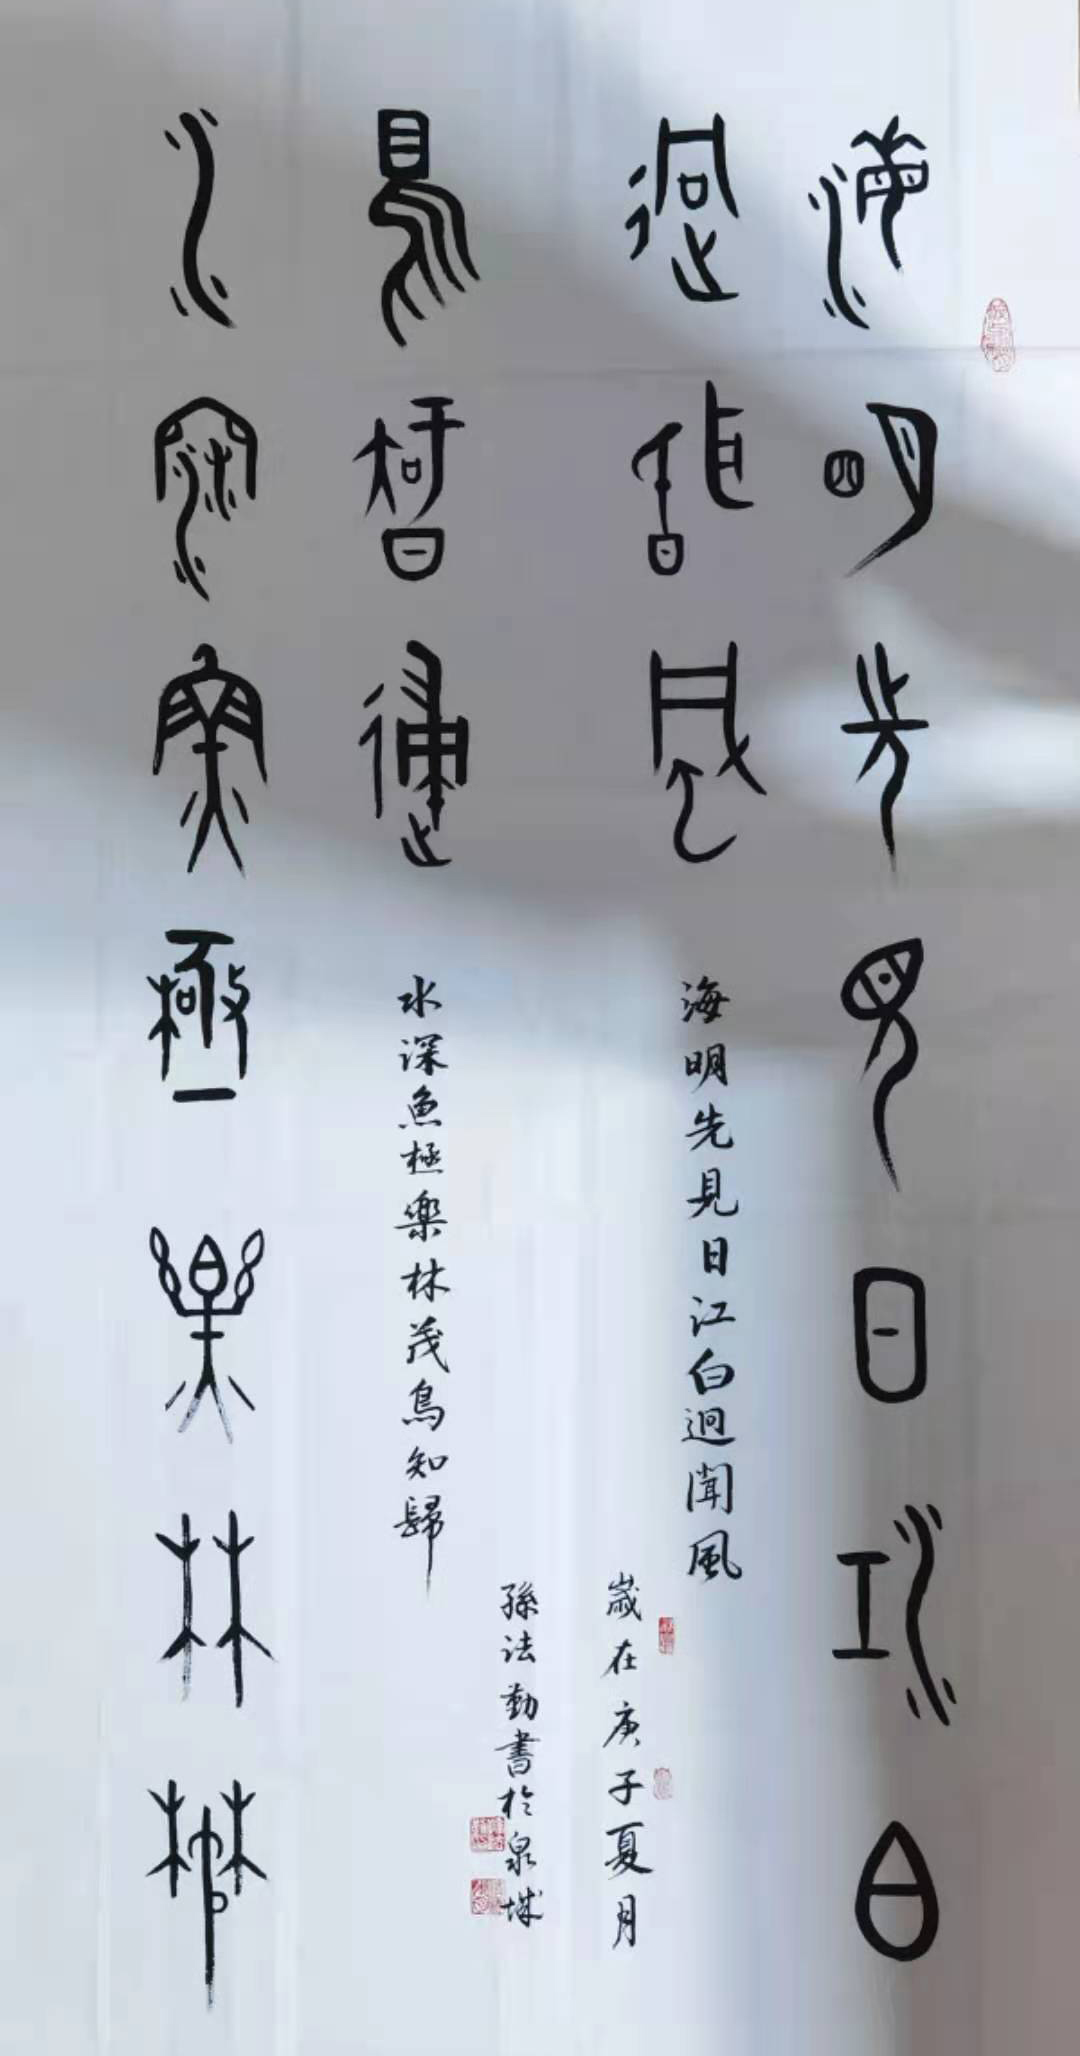 海明先見日江白
迥聞風
海明先見日江白迥聞風
歲在庚子夏月
水深魚極樂林茂
鳥知歸
水深魚極樂林茂鳥知歸
孫法勤書於泉城